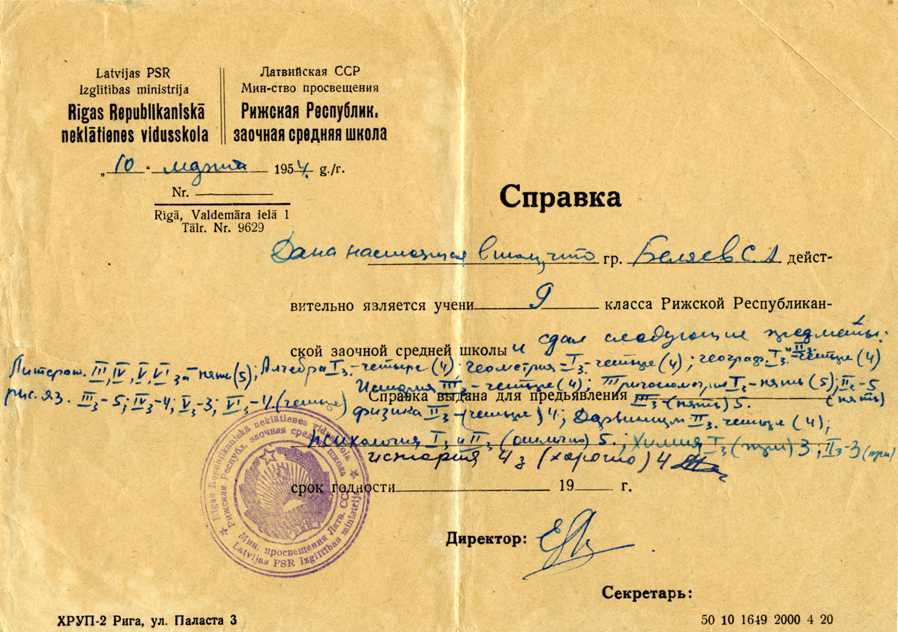 Latvijas PSR
Izglītības ministrija
Rīgas Republikaniskā
neklātienes vidusskola
Латвийская ССР
Мин-ство просвещения
Рижская Республик.
заочная средняя школа
„10“ марта 1954. g./г.
Nr.
Rīgā, Valdemāra ielā 1
Tālr. Nr. 9629
Справка
Дана настоящая в том, что гр. Беляев С. А дейст-
вительно является учени 9 класса Рижской Республикан-
ской заочной средней школы и сдал следующие предметы:
Литерат. III, IV, V, VI з на пять (5), Алгебра I з - четыре (4); геометрия I з - четыре (4); географ. I з II з - четыре (4)
рус. яз. III з - 5; IV з - 4; V з - 3; VI з - 4 (четыре) История III з - четыре (4); Тригонометрия I з - пять (5); II з - 5 (пять)
Справка выдана для предъявления III з - (пять) 5.
физика II з - (четыре) 4; Дарвинизм II з. четыре (4);
психология I з и II з (отлично) 5.; Химия I з (три) 3; II з - 3 (три)
история 4 з (хорошо) 4
срок годности 19 г.
Rīgas Republikaniskā neklātienes vidusskola
Рижская Республ. заочная средняя школа
Мин. просвещения Латв. ССР
Latvijas PSR Izglītības ministrija
Директор:
Секретарь:
ХРУП-2 Рига, ул. Паласта 3
50 10 1649 2000 4 20